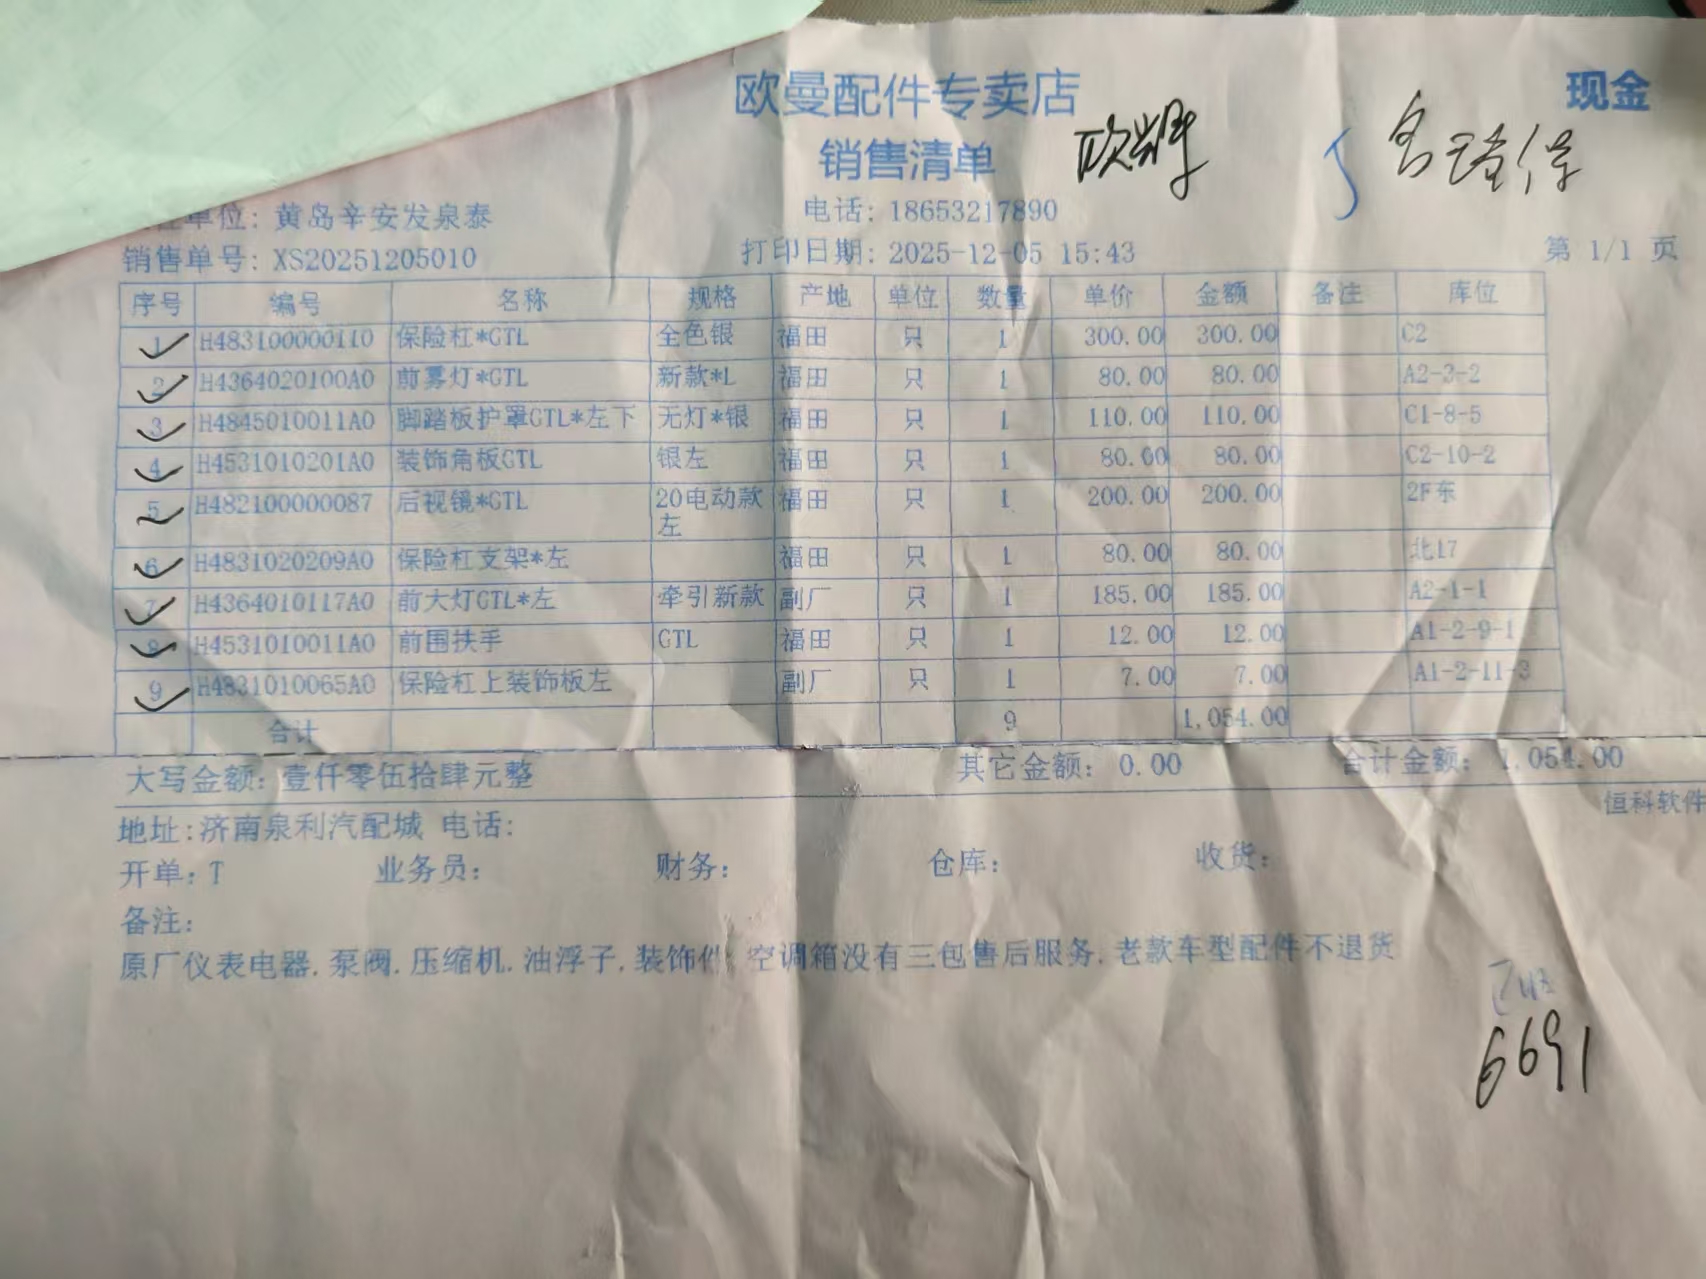 欧曼配件专卖店
现金
销售清单
单位：黄岛辛安发泉泰 电话：18653217890
销售单号：XS20251205010 打印日期：2025-12-05 15:43 第 1/1 页
序号 编号 名称 规格 产地 单位 数量 单价 金额 备注 库位
1 H483100000110 保险杠*GTL 全色银 福田 只 1 300.00 300.00 C2
2 H4364020100A0 前雾灯*GTL 新款*L 福田 只 1 80.00 80.00 A2-3-2
3 H4845010011A0 脚踏板护罩GTL*左下 无灯*银 福田 只 1 110.00 110.00 C1-8-5
4 H4531010201A0 装饰角板GTL 银左 福田 只 1 80.00 80.00 C2-10-2
5 H482100000087 后视镜*GTL 20电动款左 福田 只 1 200.00 200.00 2F东
6 H4831020209A0 保险杠支架*左 福田 只 1 80.00 80.00 北17
7 H4364010117A0 前大灯GTL*左 牵引新款 副厂 只 1 185.00 185.00 A2-1-1
8 H4531010011A0 前围扶手 GTL 福田 只 1 12.00 12.00 A1-2-9-1
9 H4831010065A0 保险杠上装饰板左 副厂 只 1 7.00 7.00 A1-2-11-3
合计 9 1,054.00
大写金额：壹仟零伍拾肆元整 其它金额：0.00 合计金额：1,054.00
恒科软件
地址：济南泉利汽配城 电话：
开单：T 业务员： 财务： 仓库： 收货：
备注：
原厂仪表电器.泵阀.压缩机.油浮子.装饰件.空调箱没有三包售后服务.老款车型配件不退货
6691